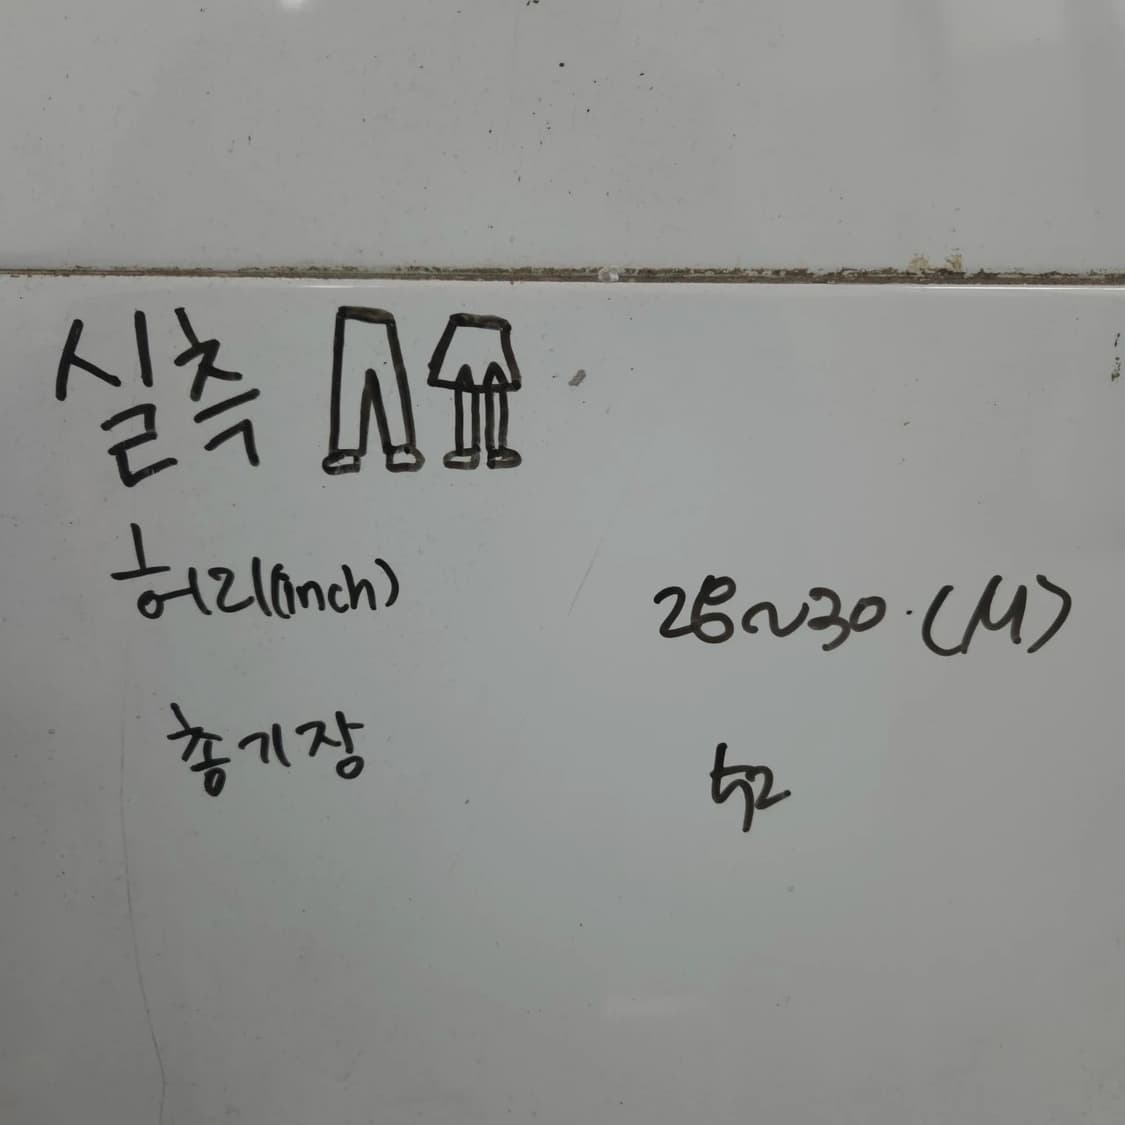 실측
허리(inch) 28~30.(M)
총기장 52